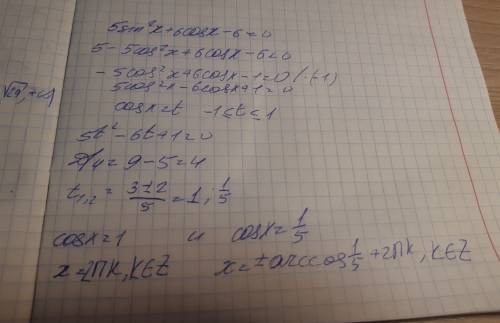 5sin²x+6cosx-6=0
5-5cos²x+6cosx-6=0
-5cos²x+6cosx-1=0 /·(-1)
5cos²x-6cosx+1=0
cosx=t -1≤t≤1
5t²-6t+1=0
D/4=9-5=4
t₁,₂ = (3±2)/5 = 1 ; 1/5
cosx=1 и cosx=1/5
x=2πk, k∈Z x=±arccos 1/5 +2πk, k∈Z